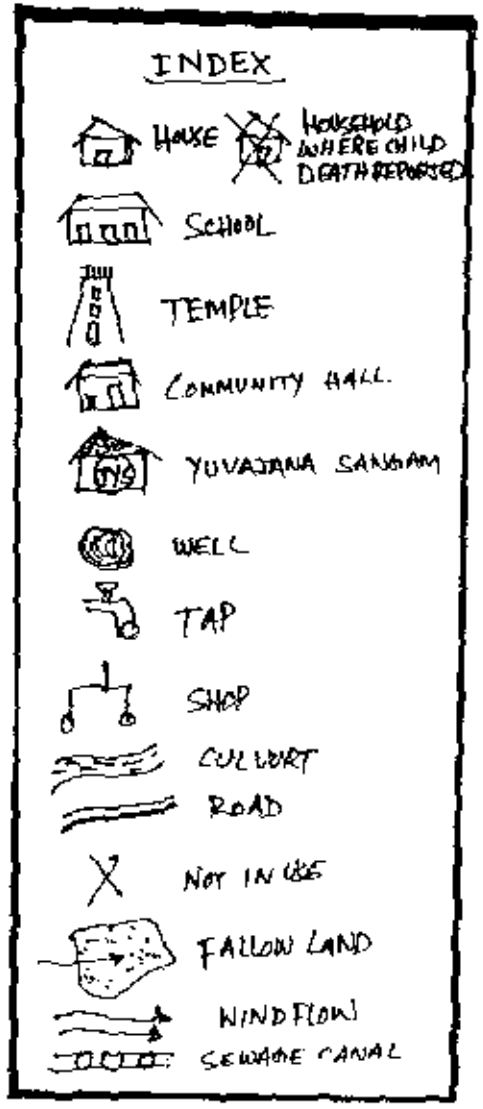 INDEX
HOUSE
HOUSEHOLD
WHERE CHILD
DEATH REPORTED
SCHOOL
TEMPLE
COMMUNITY HALL.
YUVAJANA SANGAM
WELL
TAP
SHOP
CULVORT
ROAD
NOT IN USE
FALLOW LAND
WINDFLOW
SEWAGE CANAL